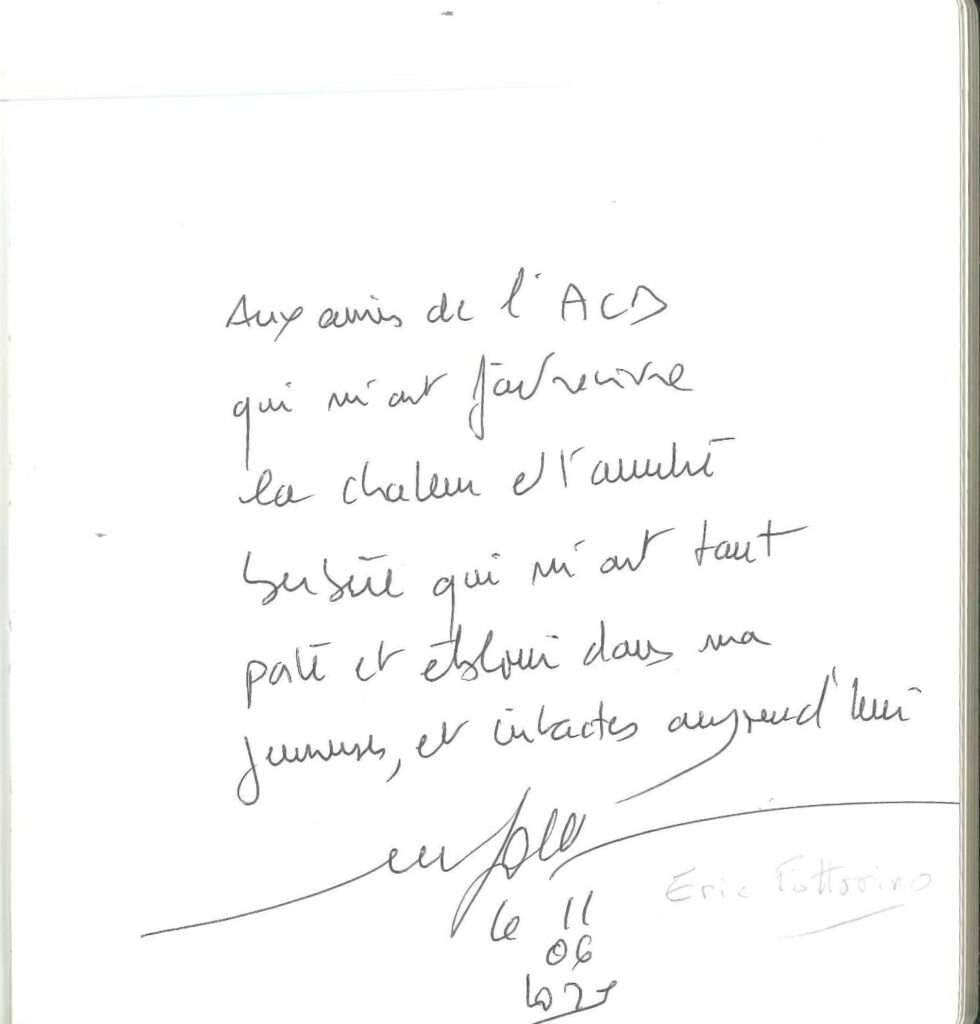 Aux amis de l'ACB
qui m'ont fait revivre
la chaleur et l'amitié
berbère qui m'ont tant
porté et ébloui dans ma
jeunesse, et intactes aujourd'hui
le 11
06
2025
Eric Fottorino